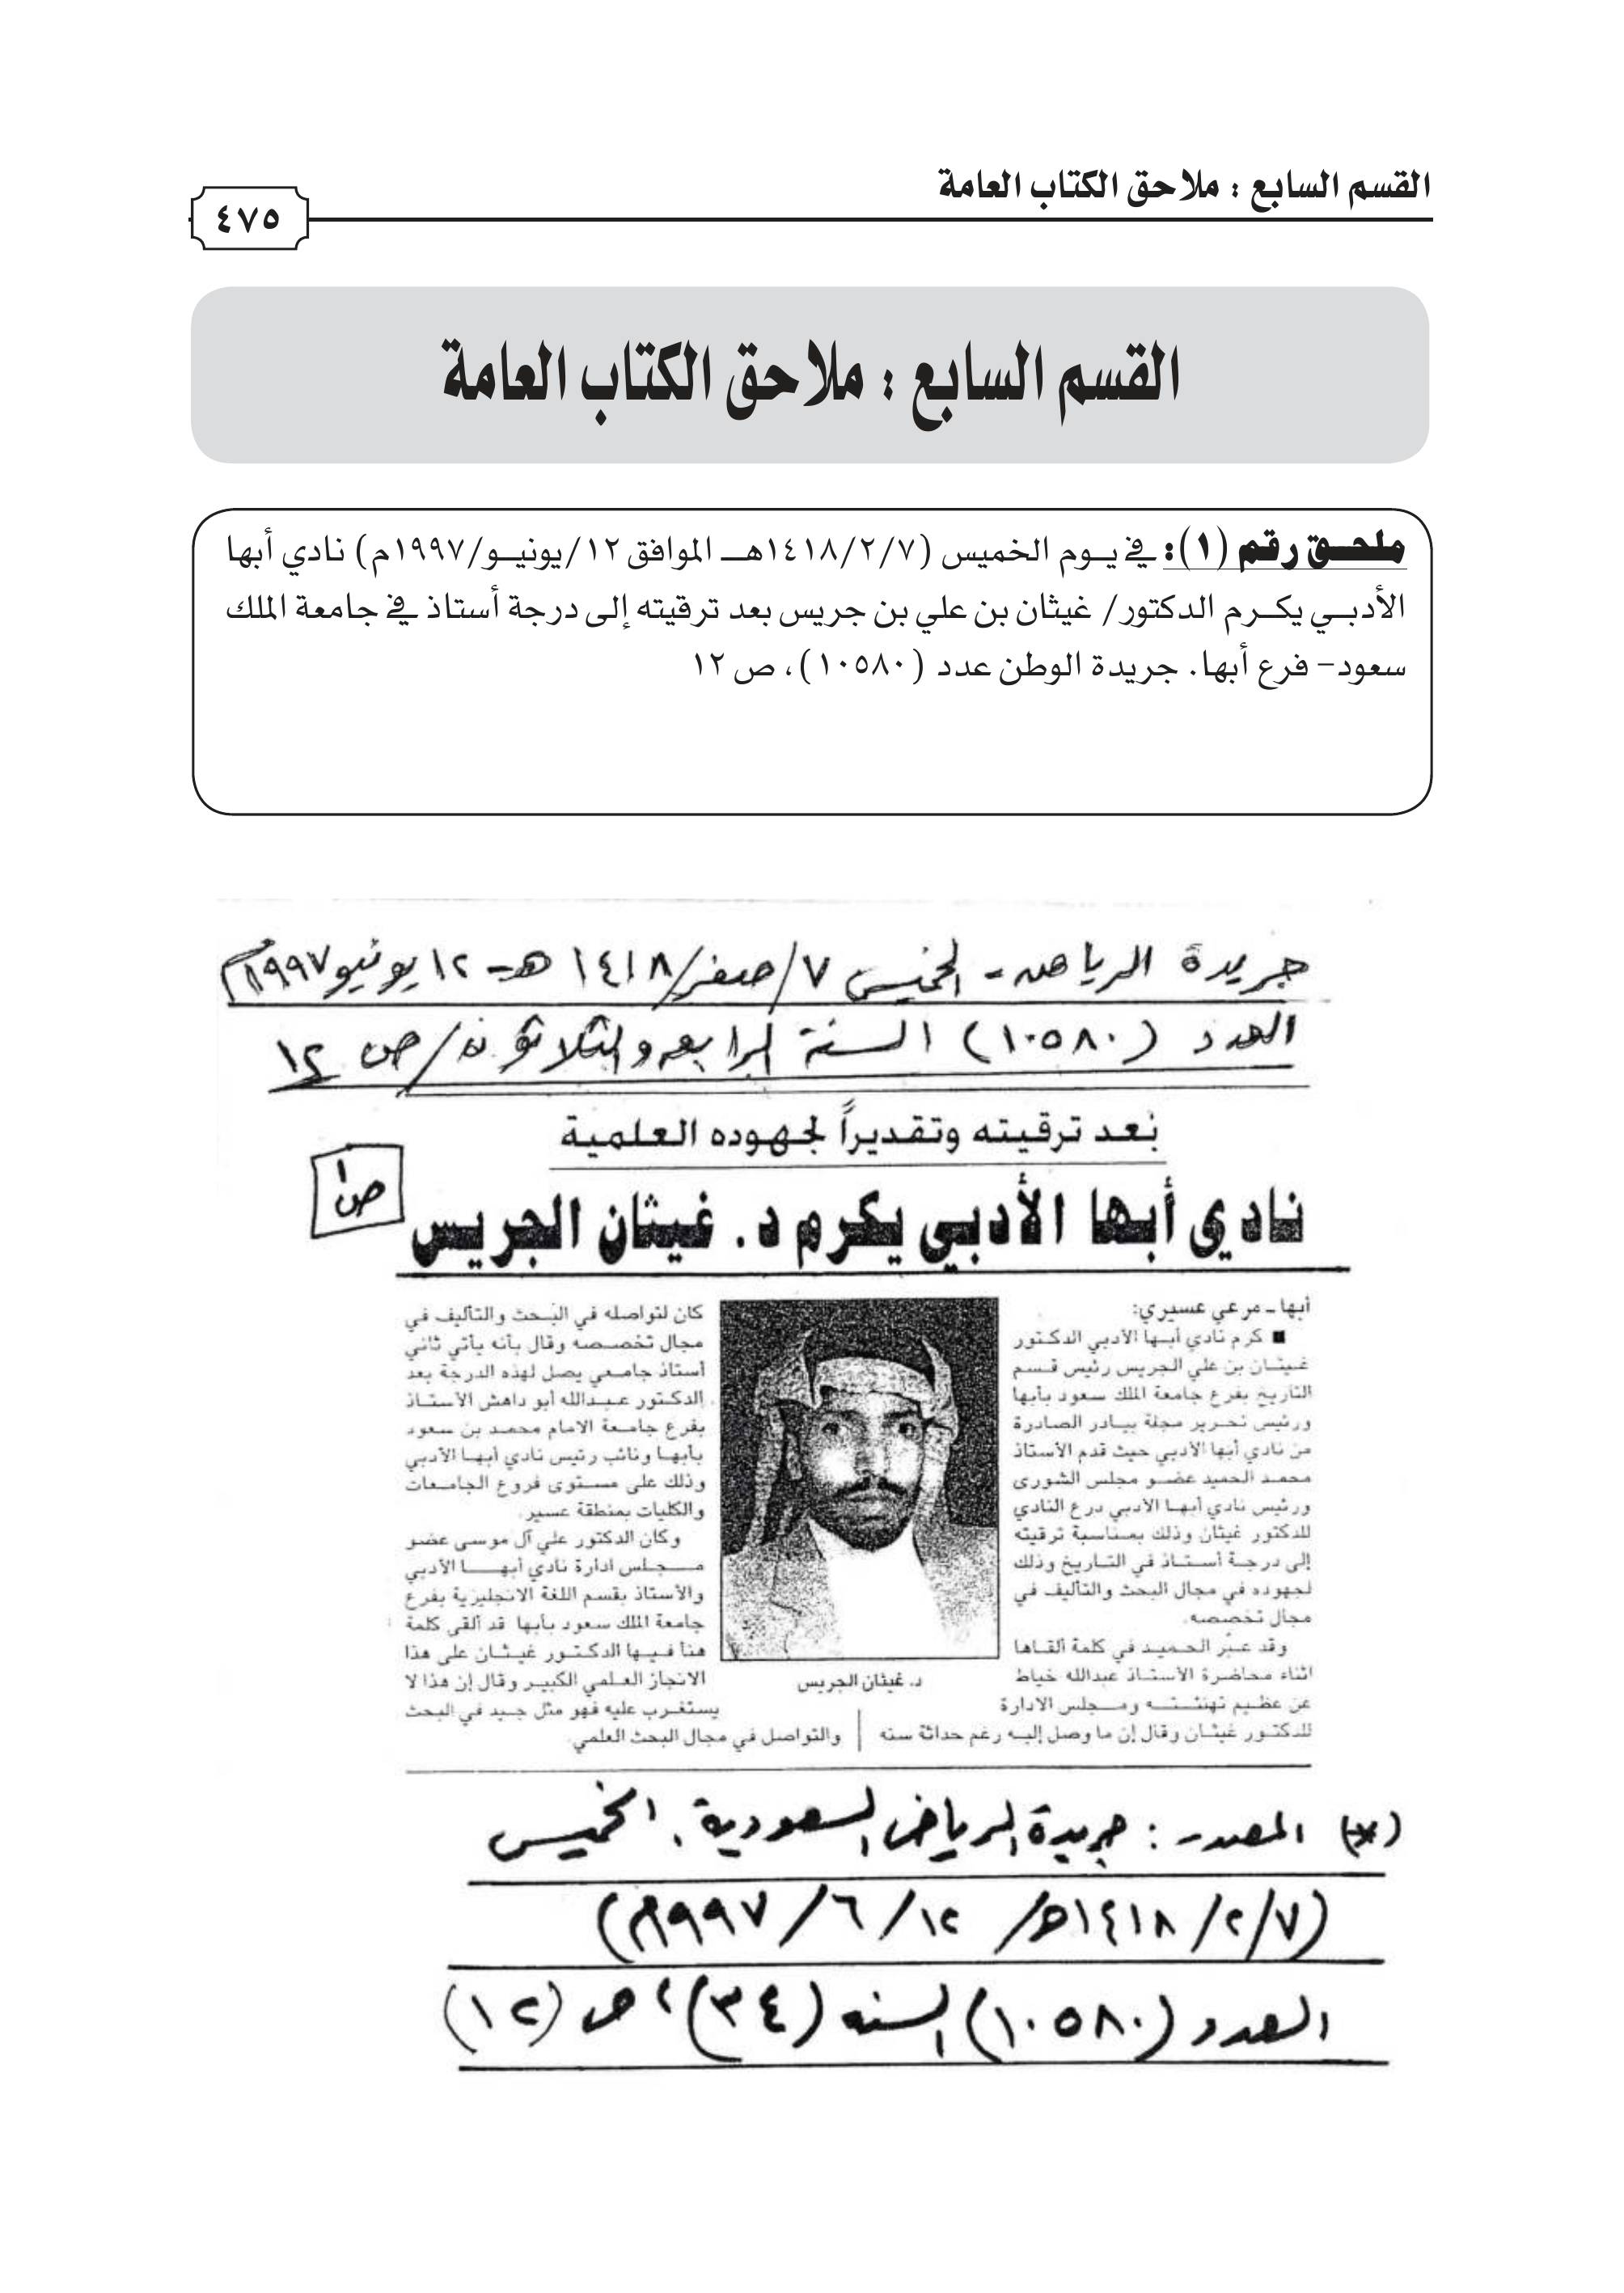 القسم السابع : ملاحق الكتاب العامة
٤٧٥
القسم السابع : ملاحق الكتاب العامة
ملحـــق رقم (١): في يــوم الخميس (١٤١٨/٢/٧هـــ الموافق ١٢/يونيــو/١٩٩٧م) نادي أبها
الأدبــي يكــرم الدكتور/ غيثان بن علي بن جريس بعد ترقيته إلى درجة أستاذ في جامعة الملك
سعود- فرع أبها. جريدة الوطن عدد (١٠٥٨٠)، ص ١٢
جريدة الرياض - الخميس ٧/صفر/١٤١٨ هـ - ١٢ يونيو ١٩٩٧م
العدد (١٠٥٨٠) السنة الرابعة والثلاثون/ص ١٢
بعد ترقيته وتقديراً لجهوده العلمية
ص١
نادي أبها الأدبي يكرم د. غيثان الجريس
أبها ـ مرعي عسيري:
■ كرم نادي أبها الأدبي الدكتور
غيثان بن علي الجريس رئيس قسم
التاريخ بفرع جامعة الملك سعود بأبها
ورئيس تحرير مجلة بيادر الصادرة
من نادي أبها الأدبي حيث قدم الأستاذ
محمد الحميد عضو مجلس الشورى
ورئيس نادي أبها الأدبي درع النادي
للدكتور غيثان وذلك بمناسبة ترقيته
إلى درجة أستاذ في التاريخ وذلك
لجهوده في مجال البحث والتأليف في
مجال تخصصه.
وقد عبّر الحميد في كلمة ألقاها
اثناء محاضرة الأستاذ عبدالله خياط
عن عظيم تهنئته ومجلس الادارة
للدكتور غيثان وقال إن ما وصل إليه رغم حداثة سنه
د. غيثان الجريس
كان لتواصله في البحث والتأليف في
مجال تخصصه وقال بأنه يأتي ثاني
أستاذ جامعي يصل لهذه الدرجة بعد
الدكتور عبدالله أبو داهش الأستاذ
بفرع جامعة الامام محمد بن سعود
بأبها ونائب رئيس نادي أبها الأدبي
وذلك على مستوى فروع الجامعات
والكليات بمنطقة عسير.
وكان الدكتور علي آل موسى عضو
مجلس ادارة نادي أبها الأدبي
والأستاذ بقسم اللغة الانجليزية بفرع
جامعة الملك سعود بأبها قد ألقى كلمة
هنأ فيها الدكتور غيثان على هذا
الانجاز العلمي الكبير وقال إن هذا لا
يستغرب عليه فهو مثل جيد في البحث
والتواصل في مجال البحث العلمي.
(*) المصدر : جريدة الرياض السعودية . الخميس
(١٤١٨/٢/٧هـ/ ١٢/ ٦/ ١٩٩٧م)
العدد (١٠٥٨٠) السنه (٣٤) ، ص (١٢)